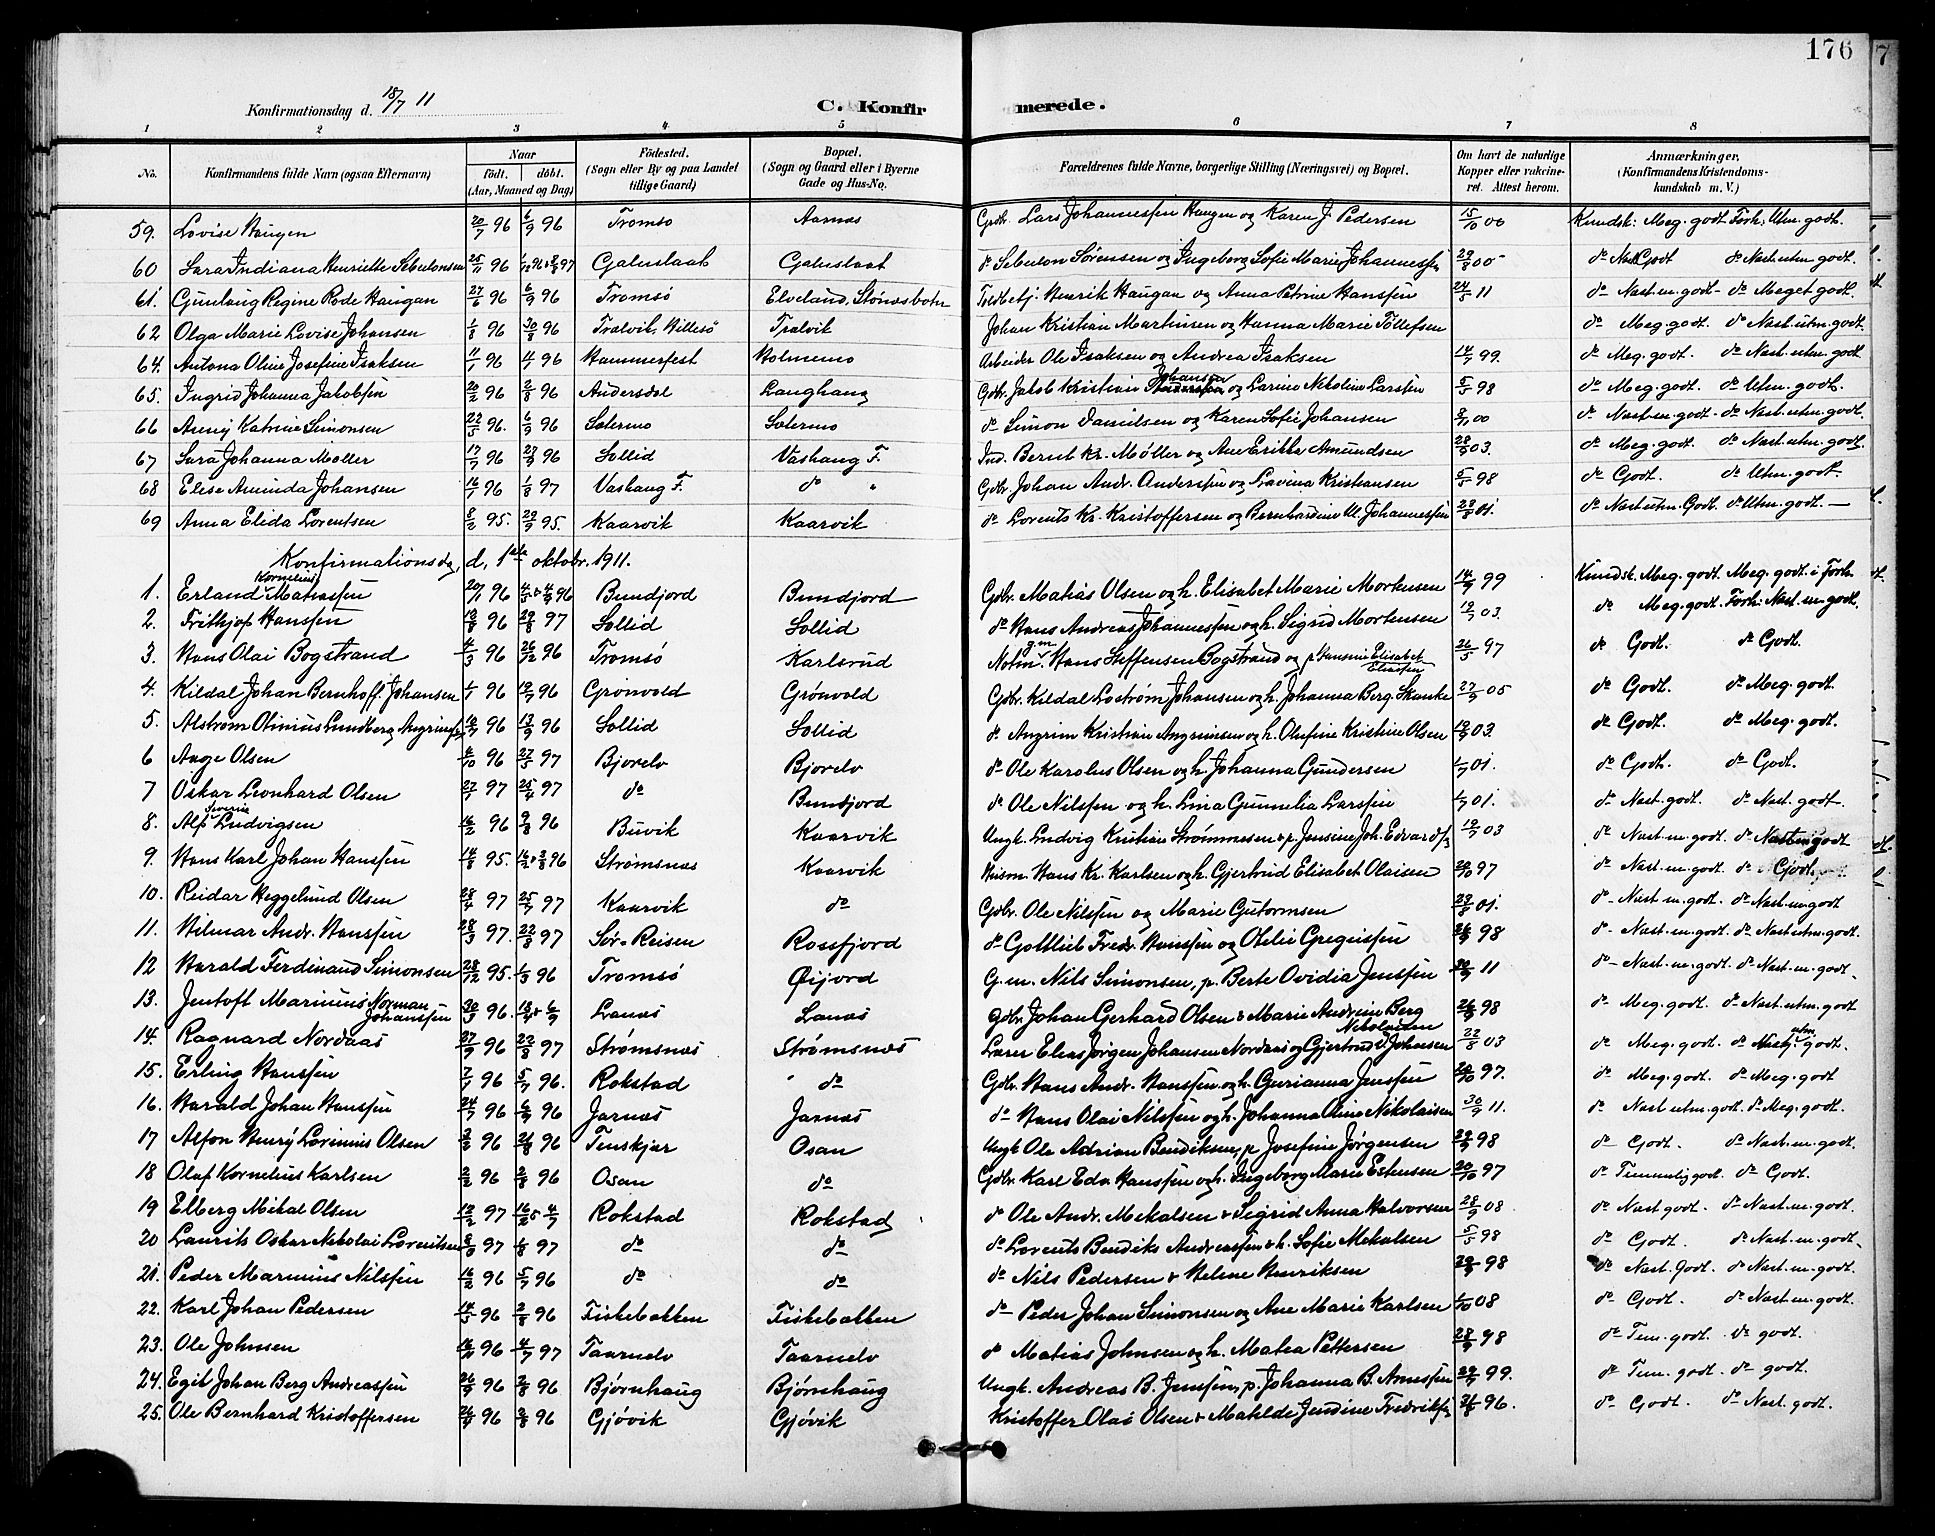 176
Konfirmationsdag d. 18/7 11 C. Konfirmerede.
1 2 3 4 5 6 7 8
No. Konfirmandens fulde Navn (ogsaa Efternavn) Naar født. døbt. (Aar, Maaned og Dag) Födested. (Sogn eller By og paa Landet tillige Gaard) Bopæl. (Sogn og Gaard eller i Byerne Gade og Hus-No. Forældrenes fulde Navne, borgerlige Stilling (Næringsvei) og Bopæl. Om havt de naturlige Kopper eller vakcineret. Attest herom. Anmærkninger. (Konfirmandens Kristendomskundskab m. V.)
59. Lovise Haugen 20/7 96 6/9 96 Tromsø Aarnæs Gdbr. Lars Johannessen Haugen og Karen J. Pedersen 15/10 00 Kundsk: Meg. godt Forh: Utm. godt.
60 Sara Indiana Henriette Sebulonsen 25/11 96 Galuslaat Galuslaat do Sebulon Sørensen og Ingeborg Sofie Marie Johannessen 29/8 00 do Nast Godt do Nast utm. godt.
61. Gunlaug Regine Rode Haugan 27/6 96 6/9 96 Tromsø Elveland, Stønesbotn Toldbetj. Henrik Haugan og Anna Petrine Hanssen 24/5 11 do Nast m. godt do Meget godt.
62 Olga Marie Lovise Johansen 1/8 96 30/8 96 Tralvik, Hillesø Tralvik Johan Kristian Martinsen og Hanna Marie Tollefsen do Meg. godt. do Nast utm. godt.
64. Antona Oline Josefine Isaksen 11/1 96 4/4 96 Hammerfest Holmemo Arbeider Ole Isaksen og Andrea Isaksen 14/7 99. do Meg. godt. do Nast utm. godt.
65. Ingrid Johanna Jakobsen 20/2 96 2/8 96 Andersdal Langhaug Gdbr. Jakob Kristian Johansen og Larine Nekoline Larssen 5/5 98 do Meg. godt. do Utm. godt.
66 Anny Katrine Simonsen 22/5 96. 6/9 96 Solermo Solermo do Simon Danielsen og Karen Sofie Johansen 00 do Nast m. godt do Nast utm. godt.
67 Sara Johanna Møller 17/7 96 27/9 96 Sollid Vashaug F. Ind. Bernt Kr. Møller og Ane Erikka Amundsen 28/9 03. do Meg. godt. do Nast utm. godt.
68 Elise Aminda Johansen 16/1 96 1/8 97 Vashaug F. do " Gdbr. Johan Andr. Anderssen og Lavina Kristiansen 5/5 98 do Godt. do Utm. godt.
69 Anna Elida Lorentsen 8/2 95. 29/9 95. Kaarvik Kaarvik do Lorents Kr. Kristoffersen og Bernhardine M. Johannessen 23/8 01. do Nast utm. Godt. do Utm. godt. —
Konfirmationsdag, d, 1ste oktobr. 1911.
1. Erland Kornelius Matiassen 20/1 96 96 Bundjord Bundjord Gdbr. Matias Olsen og h. Elisabet Marie Mortensen 14/9 99 Kundsk. Meg. godt. Meg. godt i Forh.
2. Frithjof Hanssen 10/8 96 29/8 97 Sollid Sollid do Hans Andreas Johannessen og h. Sigrid Mortensen 19/7 03. do Meg. godt. Forh: Nast m. godt.
3. Hans Olai Bogstrand 4/3 96 26/12 96 Tromsø Karlsrud Notm. gm. Hans Steffensen Bogstrand og p. Hansine Elisabet Eliassen 26/5 97 do Godt. do Godt.
4. Kildal Johan Bernhoff Johansen 1/1 96 19/7 96 Grønvold Grønvold Gdbr. Kildal Lostrøm Johansen og h. Johanna Berg. Skanke 27/9 05 do Godt. do Meg. godt.
5. Alstrom Olinius Lundberg Angrimsen 10/7 96 13/9 96 Sollid Sollid do Angrim Kristian Angrimsen og h. Olufine Kristine Olsen 19/9 03. do Godt. do Meg. godt.
6 Aage Olsen 4/10 96 27/5 97 Bjorelv Bjorelv do Ole Karolus Olsen og h. Johanna Gundersen 1/7 01. do Godt. do Godt.
7 Oskar Leonhard Olsen 27/1 97 25/4 97 do Bundjord do Ole Nilssen og h. Lina Gunnelia Larssen 1/7 01. do Nast. godt. do Nast. godt.
8. Alf Severin Ludvigsen 16/2 96 9/8 96 Buvik Kaarvik Ungk. Ludvig Kristian Strømmesen & p. Jensine Joh. Edvardsen 19/7 03 do Nast. m. godt. do Nast m godt
9. Hans Karl Johan Hanssen 14/8 95. 96 Strømsnæs Kaarvik Husm. Hans Kr. Karlsen og h. Gjertrud Elisabet Olaisen 20/10 97 do Nast m. godt. do Godt.
10. Reidar Heggelund Olsen 28/4 97 25/7 97 Kaarvik do Gdbr. Ole Nilssen og Marie Gutormsen 23/8 01. do Nast m. godt. do Nast m. godt
11. Hilmar Andr. Hanssen 28/3 97. 22/8 97 Sør-Reisen Rossfjord do Gottlieb Fredr. Hanssen og Otelie Gregeissen 26/9 98 do Nast m. godt. do Nast utm. godt.
12 Harald Ferdinand Simonsen 28/12 95. 1/3 96 Tromsø Øijord G.m. Nils Simonsen, p. Berte Ovidia Jenssen 30/9 11 do Nast. m. godt. do Nast. m. godt.
13. Jentoft Marinius Norman Johanssen 30/3 96. Lanæs Lanæs Gdbr. Johan Gerhard Olsen & Marie Andrine Berg 26/9 98 do Meg. godt. do Nast. utm. godt
14. Ragnard Nordaas 27/9 96 22/8 97 Strømsnæs Strømsnæs Lærer Elias Jørgen Johansen Nordaas og Gjertrud Nekolaisen Johansen 22/8 03 do Meg. godt. do Nast utm godt.
15. Erling Hanssen 7/1 96 5/7 96. Rokstad do Gdbr. Hans Andr. Hanssen og h. Gurianna Jenssen 20/10 97. do Meg. godt. do Meg. godt
16. Harald Johan Hanssen 24/7 96 6/9 96 Jarnæs Jarnæs do Hans Olai Nilssen og h. Johanna Oline Nikolaisen 30/9 11. do Nast utm. godt. do Meg. godt.
17 Alfon Henry Lorinius Olsen 2/2 96 26/8 96 Tenskjær Osan Ungk Ole Adrian Bendiksen, p Josefine Jørgensen 29/9 98 do Godt. do Nast. m. godt.
18 Olaf Kornelius Karlsen 2/2 96 2/8 96 Osan do Gdbr. Karl Edv. Hanssen og h. Ingeborg Marie Estensen 20/10 97 do Temmelig godt. do Godt.
19 Elberg Mikal Olsen 12/2 97 Rokstad Rokstad do Ole Andr. Mekalsen & Sigrid Anna Halvorsen 28/9 08. do Nast godt. do Nast. m. godt.
20 Laurits Oskar Nekolai Lorentsen 8/3 97 1/8 97 do do do Lorents Bendiks Andreassen & h. Sofie Mekalsen 5/5 98 do Godt. do Nast. m. godt.
21. Peder Marinius Nilssen 16/2 96 5/7 96 do do do Nils Pedersen & Helene Henriksen 29/9 98 do Nast. godt. do Nast. m. godt.
22. Karl Johan Pedersen 14/5 96 2/8 96 Fiskebakken Fiskebakken do Peder Johan Simonsen og Ane Marie Karlsen 1/10 08 do Godt. do Nast. m. godt.
23. Ole Johnsen 16/11 96 4/7 97 Taarnelv Taarnelv do Matias Johnsen og h. Matea Pettersen 28/9 98 do Tem. godt. do godt.
24. Egil Johan Berg Andreassen 26/5 96 2/8 96 Bjørnhaug Bjørnhaug Ungk. Andreas B. Jenssen, p. Johanna B. Arnessen 29/9 99. do Tem. godt. do godt.
25. Ole Bernhard Kristoffersen 26/4 96 2/8 96 Gjøvik Gjøvik Kristoffer Olai Olsen & Matilde Jendine Fredriksen 26/8 96. do Godt. do Nast. godt.